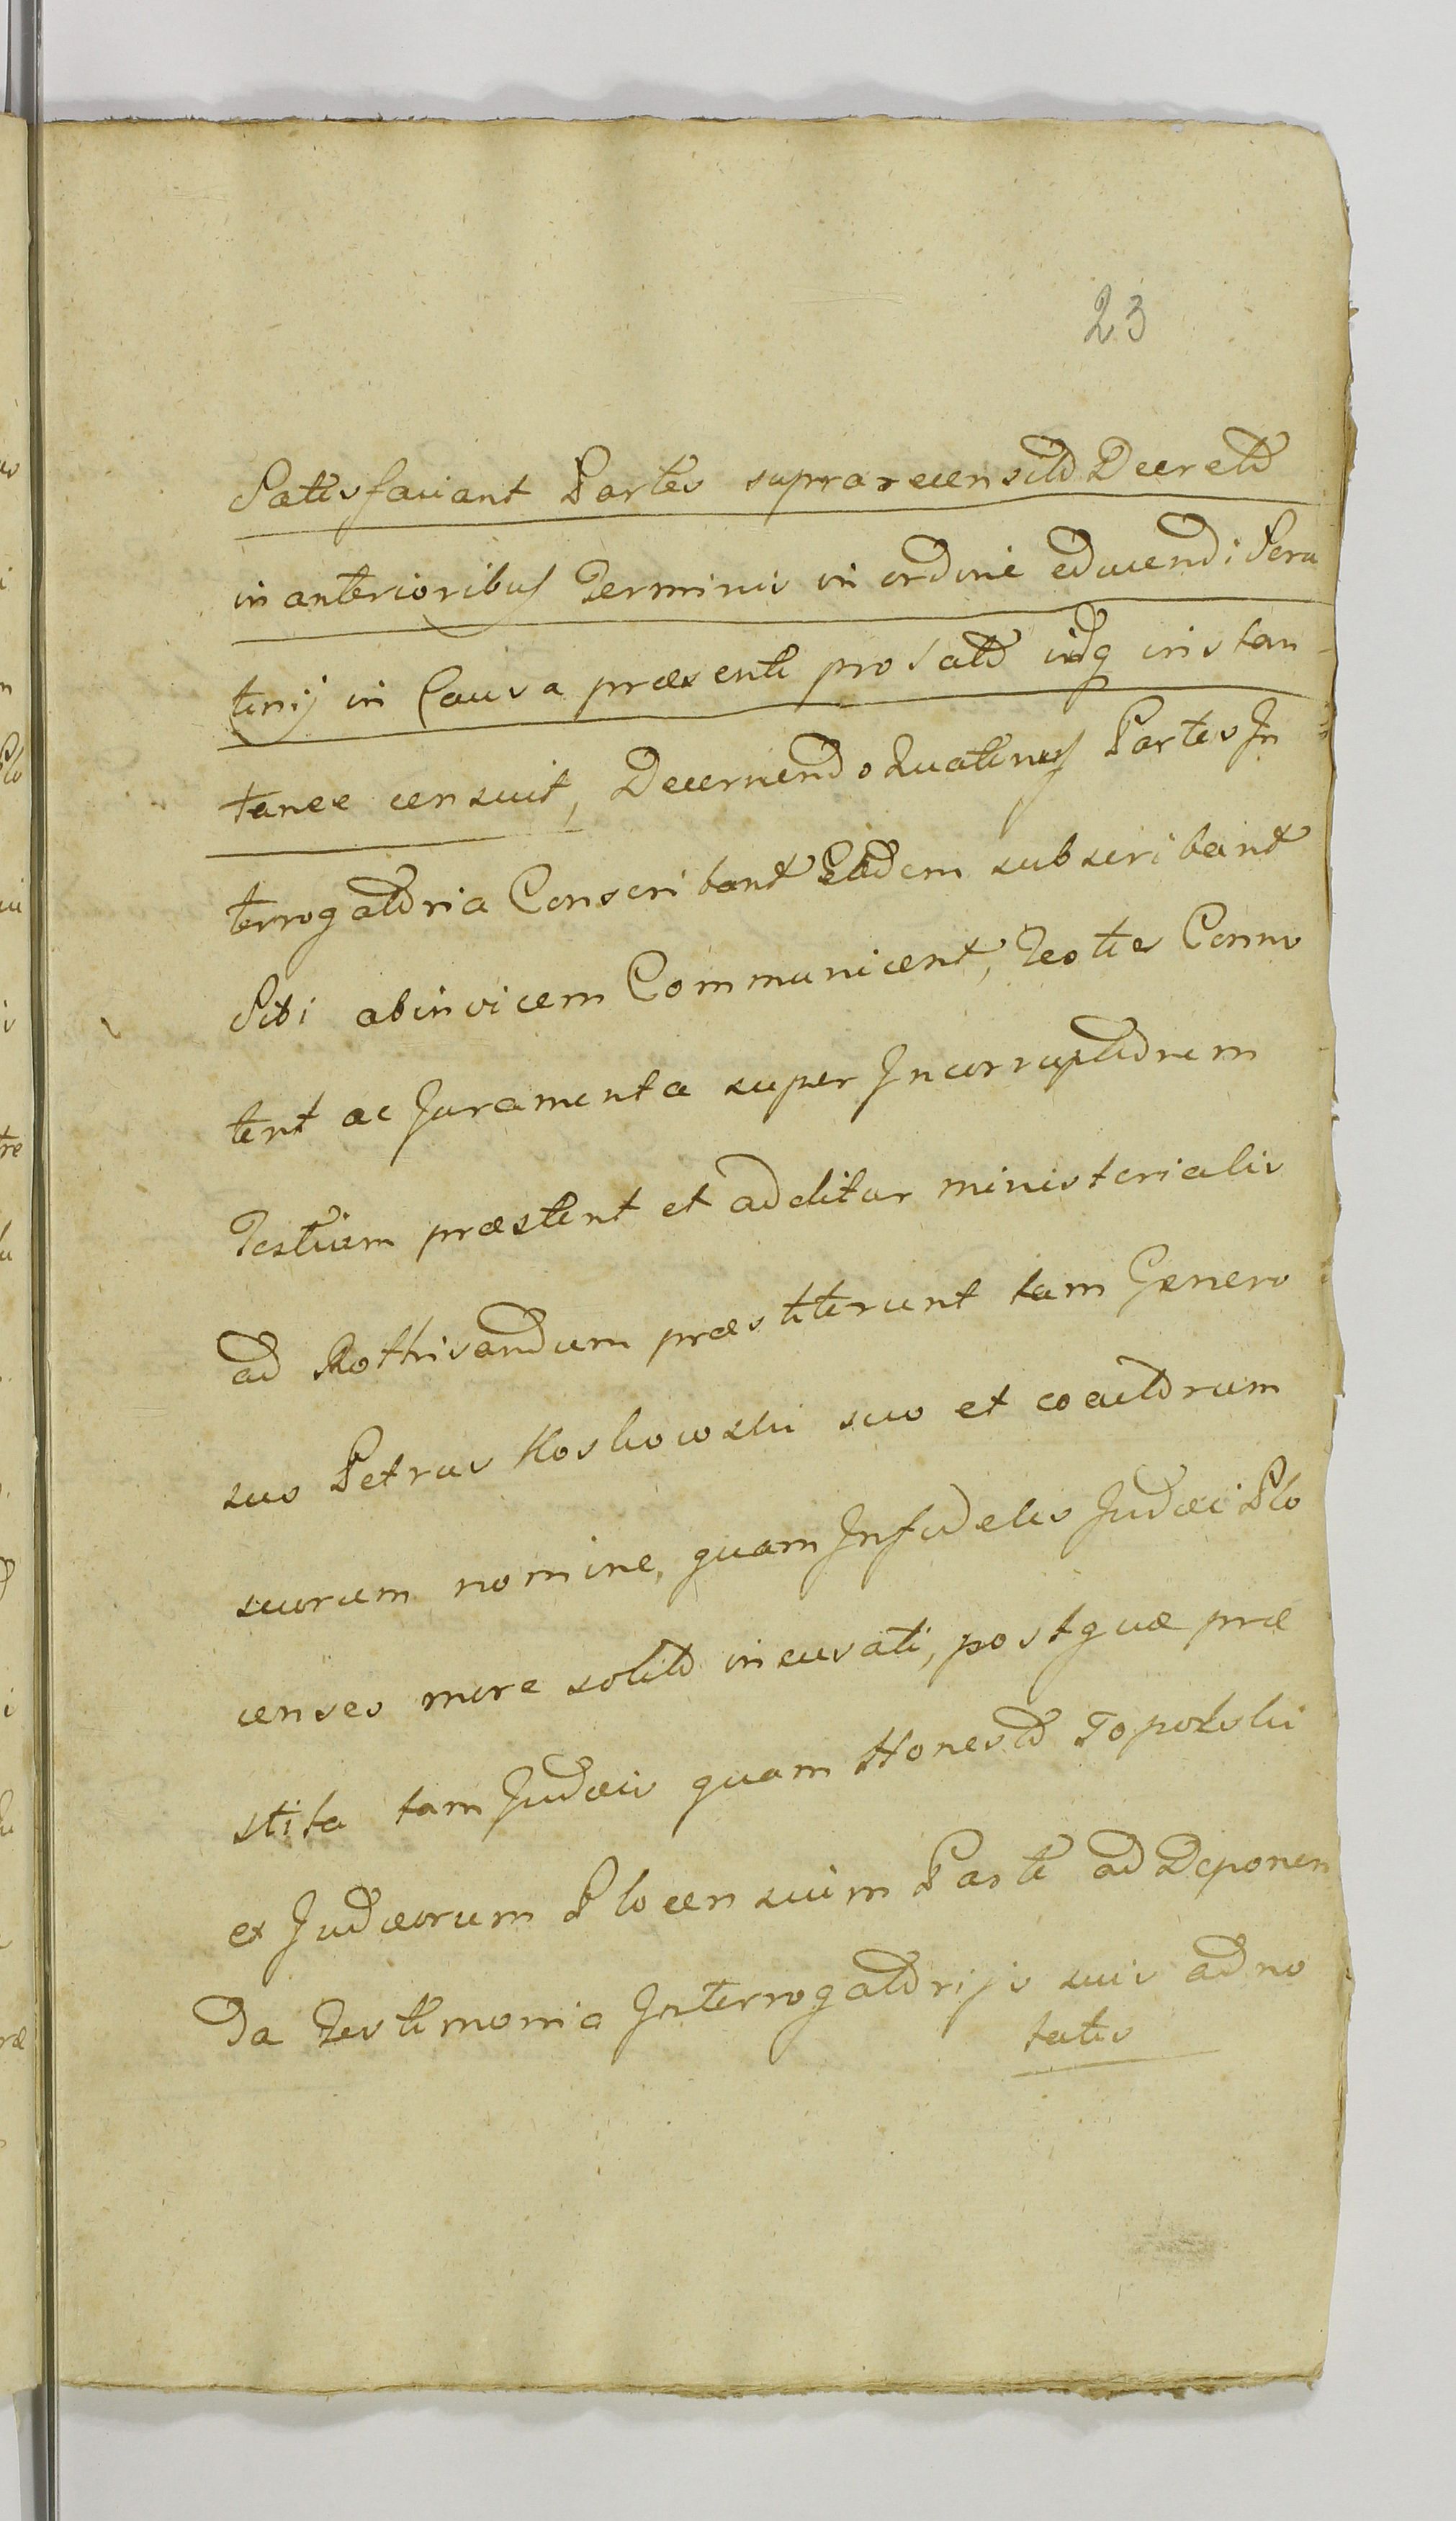 23
Satisfaciant Partes suprarecensito Decreto
in anterioribus Terminis in ordine educendi Scru
tinij in Causa præsenti prolato idq instan
tanee censuit, Decernendo Quatenus Partes In
terrogatoria Conscribant Eadem subscribant
Sibi abinvicem Communicent, Testes Conno
tent ac Juramenta super Incorruptionem
Testium præstent et additur ministerialis
ad Rothisandum præstiterunt tam Genero
sus Petrus Koskowski suo et coactorum
suorum nomine, quam Infideles Judæi Plo
censes more solito incusati, postquæ præ
stita tam Judæis quam Honesto Topolski
ex Judæorum Plocensium Parte ad Deponen
da Testimonia Interrogatorijs suis adno
tatis